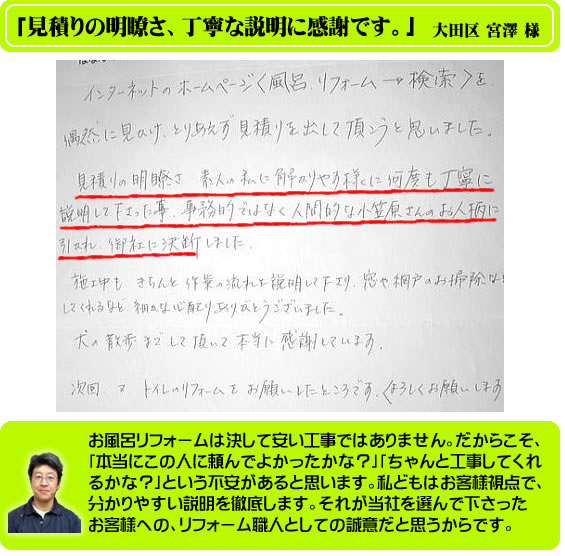 『見積りの明瞭さ、丁寧な説明に感謝です。』 大田区 宮澤 様
インターネットのホームページ〈風呂.リフォーム→検索〉を、
偶然に見つけ、とりあえず見積りを出して頂こうと思いました。
見積りの明瞭さ 素人の私に解りやす様くに何度も丁寧に
説明して下さった事、事務的ではなく人間的な小笠原さんのお人柄に
引かれ、御社に決断しました。
施工中も きちんと作業の流れを説明して下さり、窓や網戸のお掃除な
してくれるなど 細かな心配りありがとうございました。
犬の散歩までして頂いて本当に感謝しています。
次回、又 トイレのリフォームをお願いしたところです、よろしくお願いします
お風呂リフォームは決して安い工事ではありません。だからこそ、
「本当にこの人に頼んでよかったかな？」「ちゃんと工事してくれ
るかな？」という不安があると思います。私どもはお客様視点で、
分かりやすい説明を徹底します。それが当社を選んで下さった
お客様への、リフォーム職人としての誠意だと思うからです。